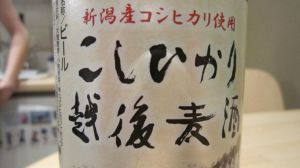 新潟産コシヒカリ使用
こしひかり
越後麦酒
名称/ビール